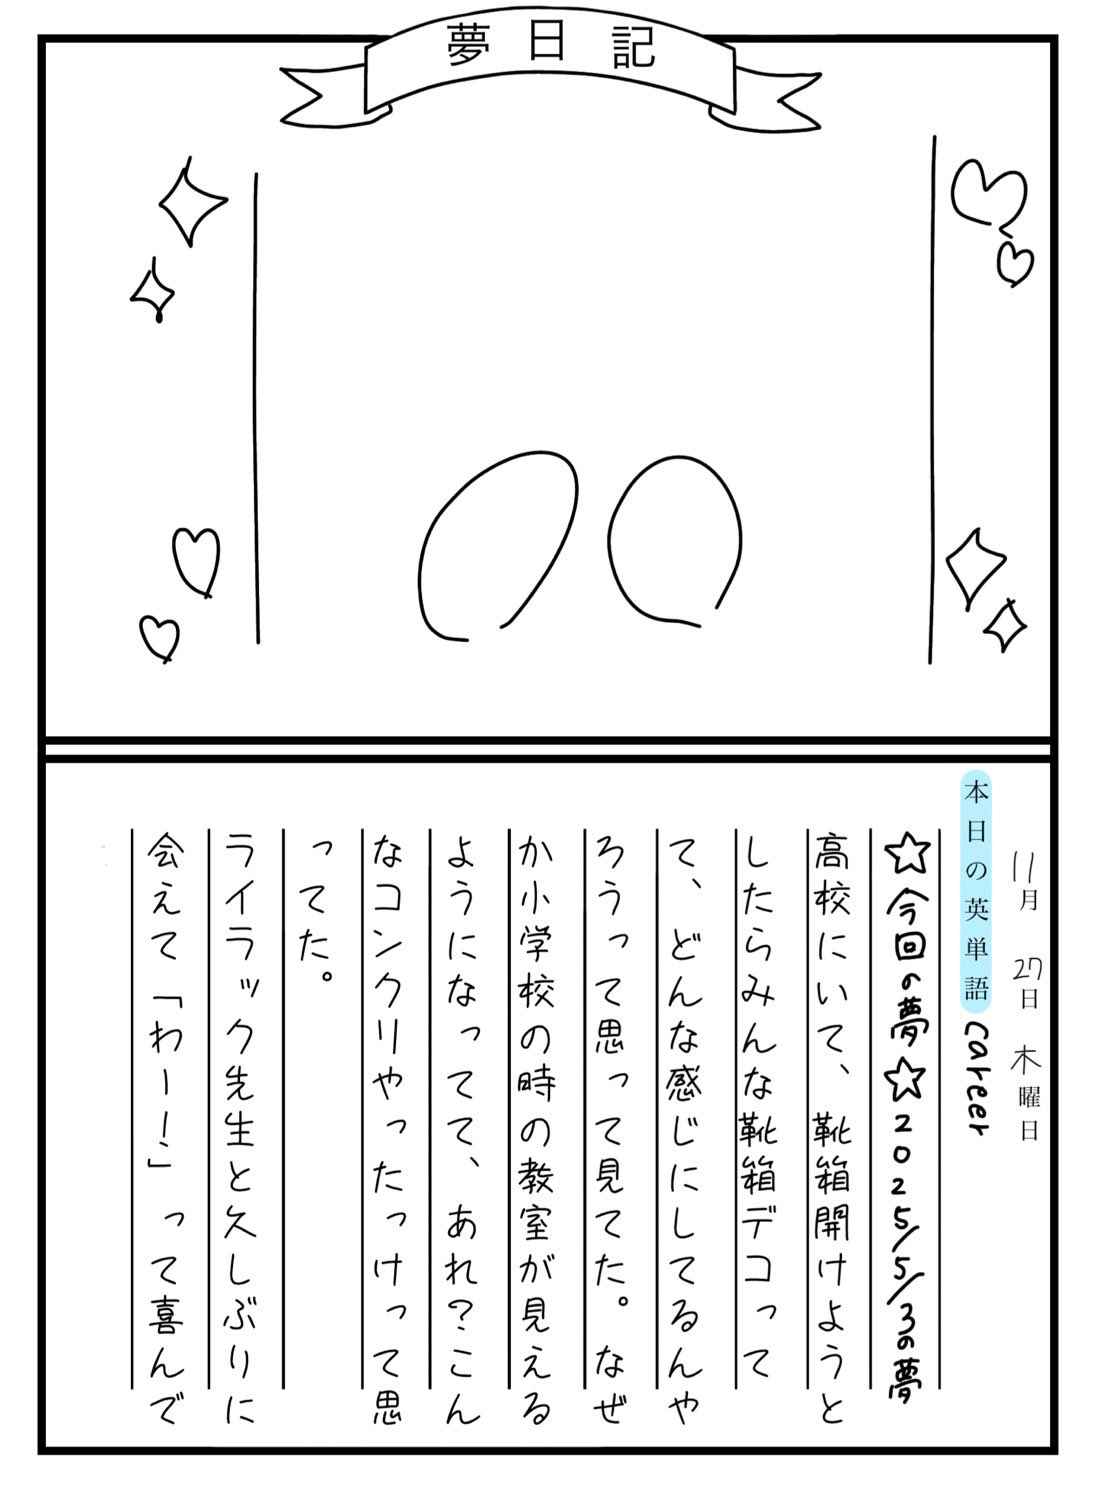 夢日記
11月27日木曜日
本日の英単語 career
☆今回の夢☆2025/5/3の夢
高校にいて、靴箱開けようと
したらみんな靴箱デコって
て、どんな感じにしてるんや
ろうって思って見てた。なぜ
か小学校の時の教室が見える
ようになってて、あれ?こん
なコンクリやったっけって思
ってた。
ライラック先生と久しぶりに
会えて「わー!」って喜んで